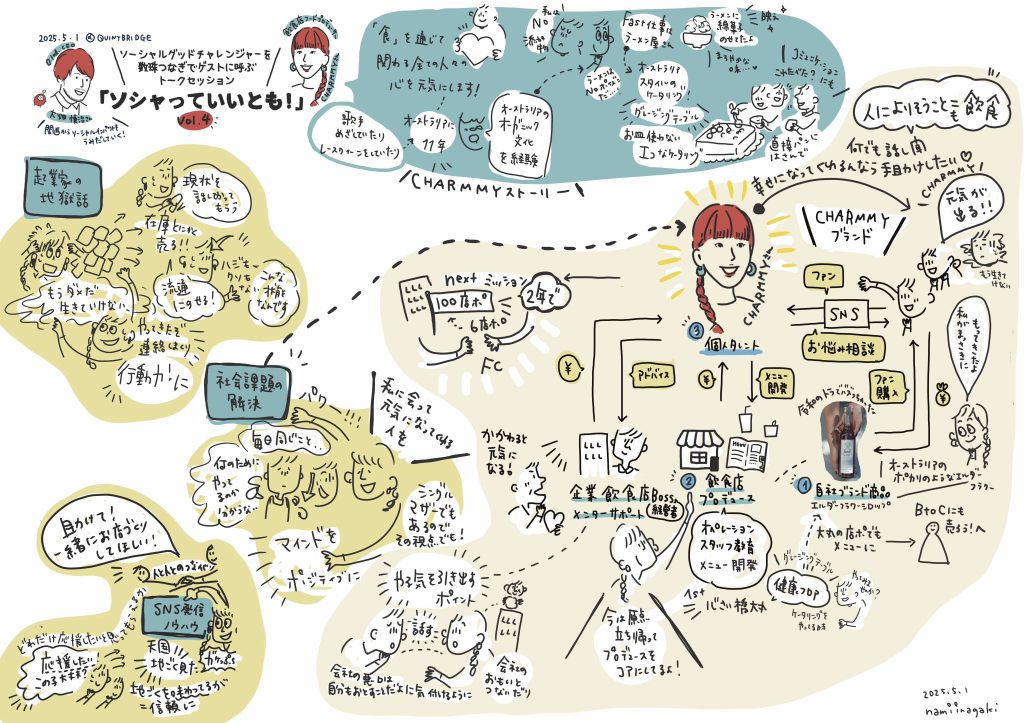 2025.5.1 @QUINTBRIDGE
ソーシャルグッドチャレンジャーを
数珠つなぎでゲストに呼ぶ
トークセッション
「ソシャっていいとも!」
vol.4
関西からソーシャルインパクトを
うみだしていく!
飲食店フードプロデューサー
CHARMMYさん
「食」を通じて
関わる全ての人々の
心を元気にします!
歌手
めざしていたり
レースクィーンをしていたり
オーストラリアに
11年
オーストラリアの
オーガニック
文化
を経験
私は
NO
添加物
Fast仕事は
ラーメン屋さん
ラーメンは
Noポイズン
だ…
ラーメンに
綿菓子
のせたよ
まろやかな
味…♡
映え
オーストラリア
スタイルの
ケータリング!
グレージングテーブル
お皿使わない
エコなケータリング
コミュニケーション
これたべた?にも
直接パンに
はさんで
CHARMMYストーリー
起業家の
地獄話
現状を
話しあっても
もうっ
在庫とにかく
売る!!
もうダメだ
生きていけない
流通
にのせる!
ハジもー
クソも
ない
こんな
状態
なんです
やってきたぞ
連絡しまくり
行動力に
社会課題の
解決
パワー
私に会って
元気になってくれる
人を
毎日同じこと…
何のために
やって
るのか
分からない
マインドを
ポジティブに
シングル
マザーでも
あるので
その視点でも!
助けて!
一緒にお店づくり
してほしい!
人と人とのつながり
SNS発信
ノウハウ
どれだけ応援したいと思ってもらえるか
応援したい
この子大丈夫?
天国
地ごく見た
地ごくを味わってるから
=信頼に
next ミッション
100店ポ
2年で
6店ポ
FC
CHARMMYさん
③
個人タレント
幸せになってくれるんなら手助けしたい♡
何でも話し聞く
人によりそうこと=も飲食
CHARMMY!
元気が
出る!!
もう生きて
けない
CHARMMY
ブランド
ファン
SNS
お悩み相談
ファン
購入
¥
もってきたよ
私がまっさきに
¥
アドバイス
¥
メニュー
開発
かかわると
元気に
なる!
企業 飲食店Boss,経営者
メンターサポート
②
飲食店
プロデュース
MENU
オペレーション
スタッフ教育
メニュー開発
1st
心さい橋大丸
令和のドラマでバズっちゃった
①
自社ブランド商品
エルダーフラワーシロップ
オーストラリアの
ポカリのようなエルダー
フラワー
大丸の店ポでも
メニューに
BtoCにも
売ろう!へ
グレージングテーブル
健康フロア
やってみる
やっちゃう?
ケータリングを
やってる時
やる気を引き出す
ポイント
話す
会社の悪口は
自分もおとすことだよに気付けるように
会社の
おもいと
つないだり
今は原点
立ち帰って
プロデュースを
コアにしてるよ!
2025.5.1
namiinagaki